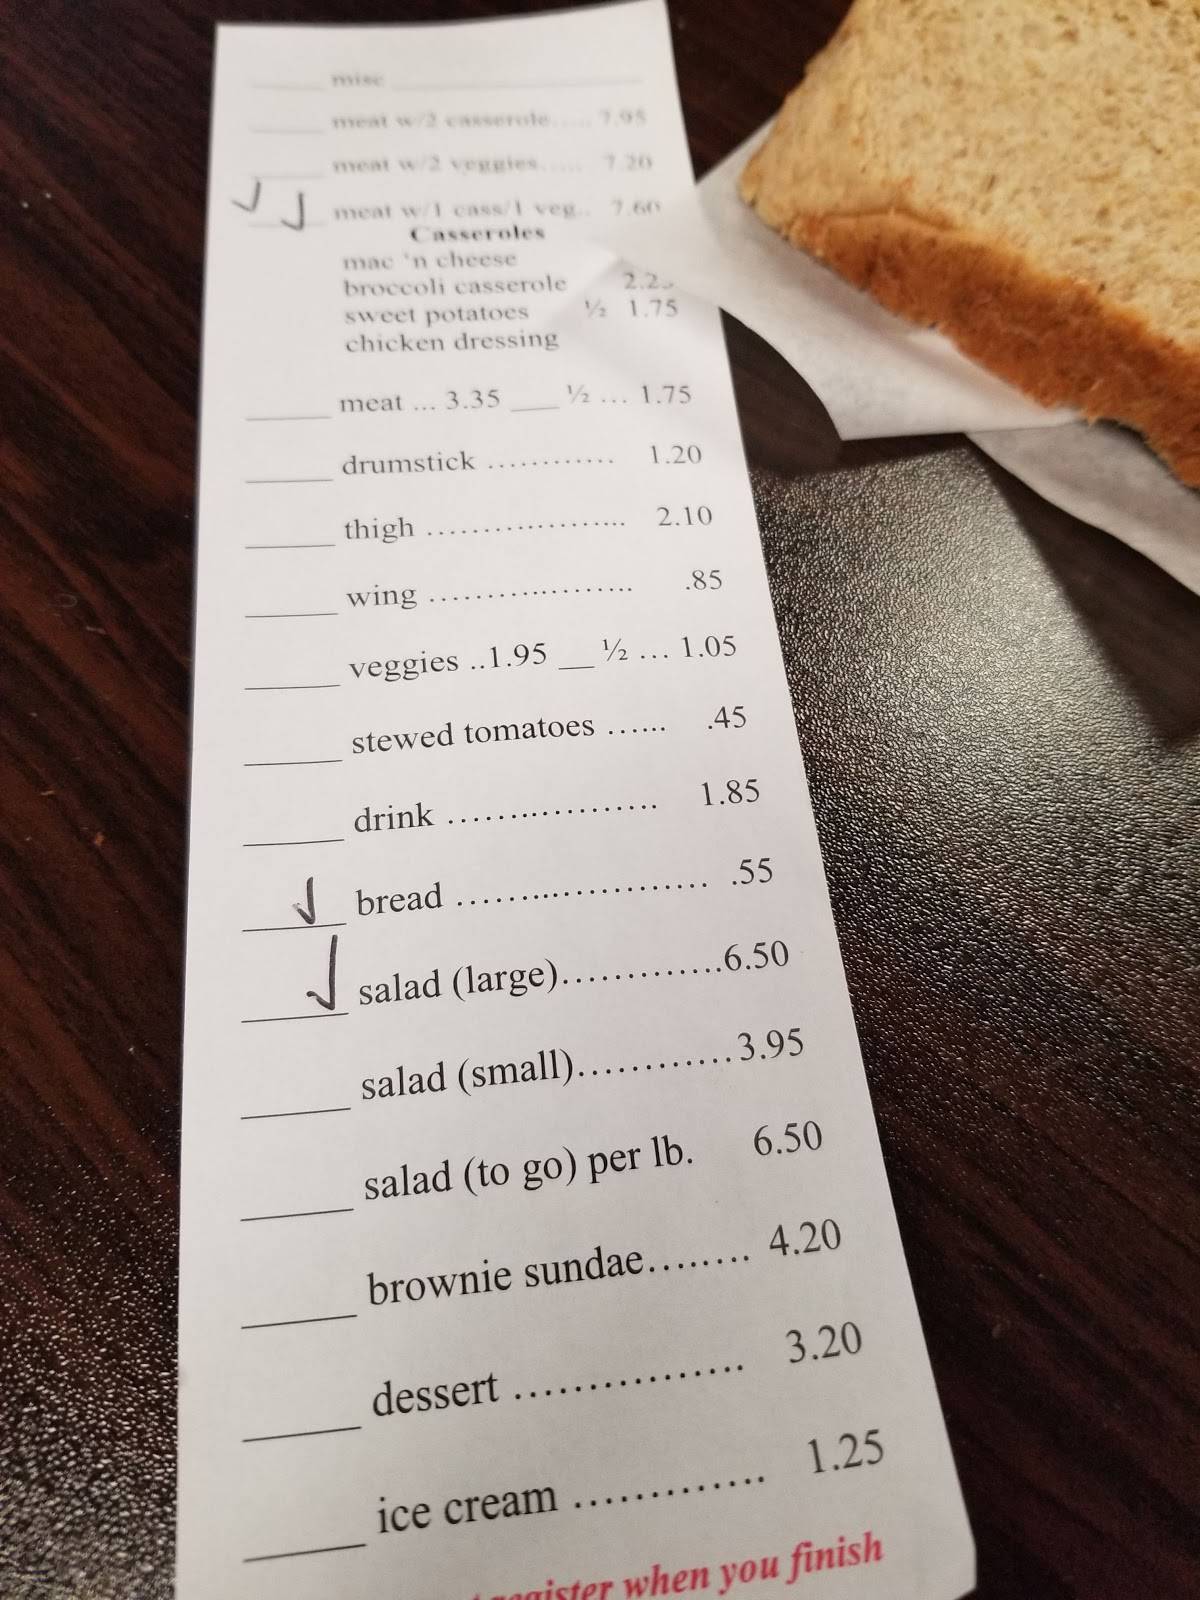 misc
meat w/2 casserole..... 7.95
meat w/2 veggies..... 7.20
meat w/1 cass/1 veg.. 7.60
Casseroles
mac 'n cheese
broccoli casserole
sweet potatoes ½ 1.75
chicken dressing
meat ... 3.35 ___ ½ ... 1.75
drumstick ............ 1.20
thigh ................... 2.10
wing ................... .85
veggies ..1.95 ___ ½ ... 1.05
stewed tomatoes ...... .45
drink ................... 1.85
bread ......................... .55
salad (large).............6.50
salad (small)............3.95
salad (to go) per lb. 6.50
brownie sundae........ 4.20
dessert ................ 3.20
ice cream ............. 1.25
register when you finish